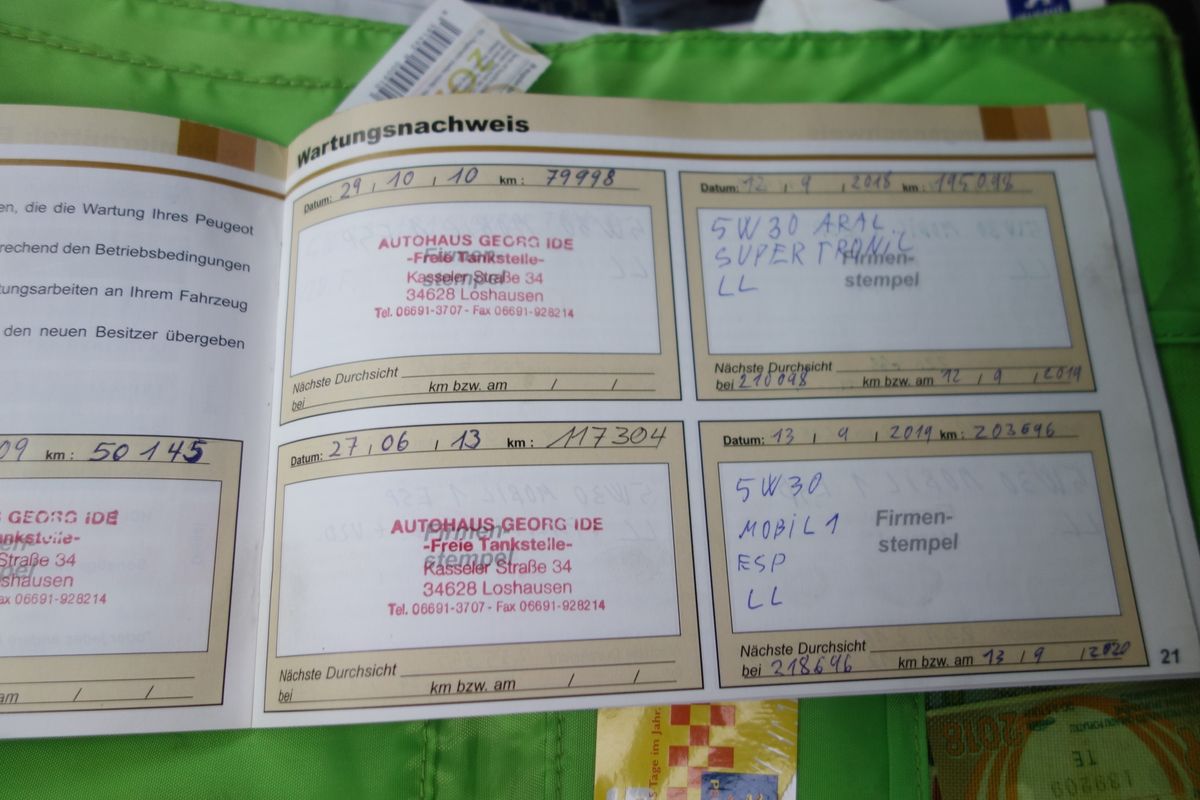 Wartungsnachweis
en, die die Wartung Ihres Peugeot
rechend den Betriebsbedingungen
tungsarbeiten an Ihrem Fahrzeug
den neuen Besitzer übergeben
09 km: 50 145
GEORG IDE
Straße 34
shausen
ax 06691-928214
am / /
Datum: 29, 10, 10 km: 79998
Firmen-
stempel
AUTOHAUS GEORG IDE
-Freie Tankstelle-
Kasseler Straße 34
34628 Loshausen
Tel. 06691-3707 - Fax 06691-928214
Nächste Durchsicht
bei km bzw. am / /
Datum: 27, 06, 13 km: 117304
Firmen-
stempel
AUTOHAUS GEORG IDE
-Freie Tankstelle-
Kasseler Straße 34
34628 Loshausen
Tel. 06691-3707 - Fax 06691-928214
Nächste Durchsicht
bei km bzw. am / /
Datum: 12, 9, 2018 km: 195098
5W30 ARAL
SUPER TRONIC
LL
Firmen-
stempel
Nächste Durchsicht
bei 210098 km bzw. am 12, 9, 2019
Datum: 13, 9, 2019 km: 203696
5W30
MOBIL 1
ESP
LL
Firmen-
stempel
Nächste Durchsicht
bei 218696 km bzw. am 13, 9, 2020
21
Tage im Jahr
2018
TE